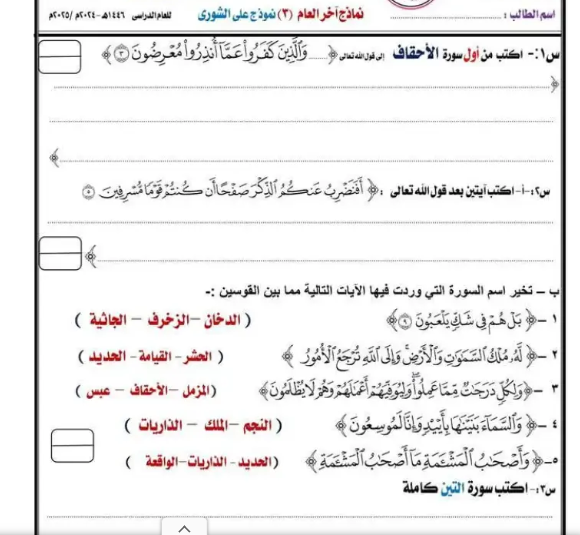 اسم الطالب : ........................ نماذج آخر العام (٣) نموذج على الشورى للعام الدراسى ١٤٤٦هـ-٢٠٢٤م /٢٠٢٥م
س١:- اكتب من أول سورة الأحقاف إلى قول الله تعالى ﴿...... وَٱلَّذِينَ كَفَرُوا۟ عَمَّآ أُنذِرُوا۟ مُعْرِضُونَ ٣﴾
س٢:-أ-اكتب آيتين بعد قول الله تعالى :﴿ أَفَنَضْرِبُ عَنكُمُ ٱلذِّكْرَ صَفْحًا أَن كُنتُمْ قَوْمًا مُّسْرِفِينَ ٥
ب – تخير اسم السورة التي وردت فيها الآيات التالية مما بين القوسين :-
١ –﴿ بَلْ هُمْ فِى شَكٍّ يَلْعَبُونَ ٩﴾ ( الدخان – الزخرف – الجاثية )
٢ –﴿ لَّهُۥ مُلْكُ ٱلسَّمَٰوَٰتِ وَٱلْأَرْضِ ۚ وَإِلَى ٱللَّهِ تُرْجَعُ ٱلْأُمُورُ ﴾ ( الحشر – القيامة – الحديد )
٣ –﴿وَلِكُلٍّ دَرَجَٰتٌ مِّمَّا عَمِلُوا۟ ۖ وَلِيُوَفِّيَهُمْ أَعْمَٰلَهُمْ وَهُمْ لَا يُظْلَمُونَ﴾ (المزمل – الأحقاف – عبس )
٤ –﴿ وَٱلسَّمَآءَ بَنَيْنَٰهَا بِأَيْي۟دٍ وَإِنَّا لَمُوسِعُونَ ﴾ ( النجم – الملك – الذاريات )
٥–﴿ وَأَصْحَٰبُ ٱلْمَشْـَٔمَةِ مَآ أَصْحَٰبُ ٱلْمَشْـَٔمَةِ ﴾ (الحديد - الذاريات – الواقعة )
س٣:- اكتب سورة التين كاملة